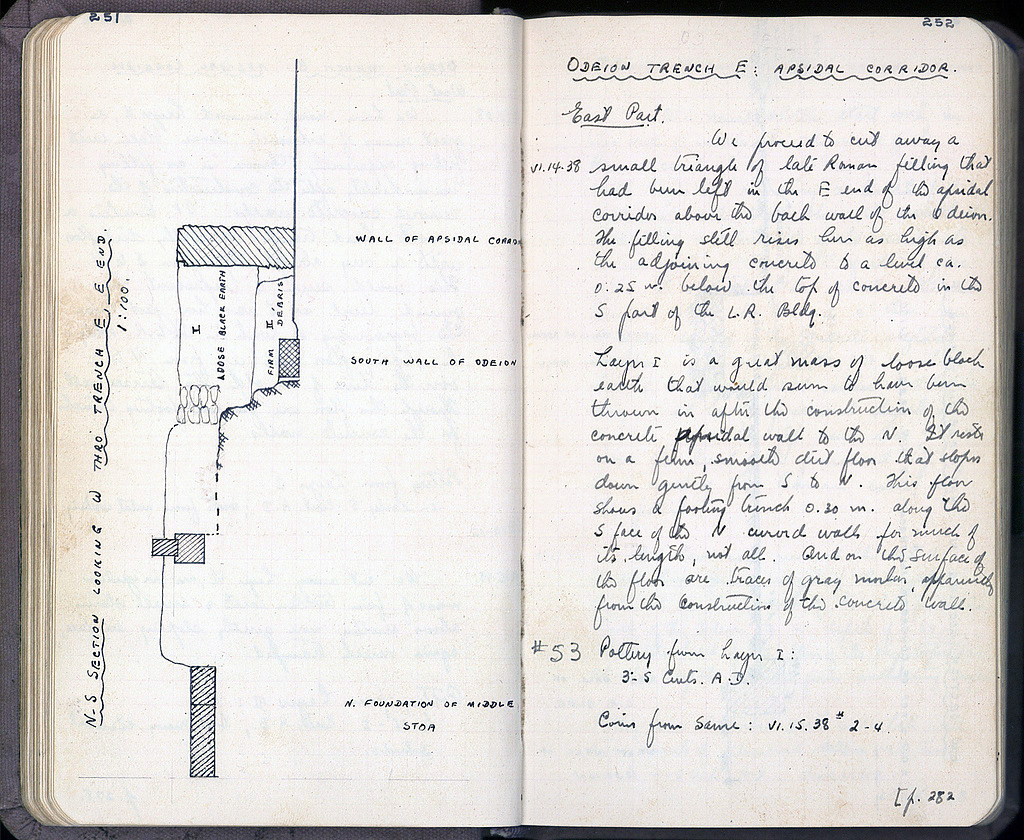 251
N-S SECTION LOOKING W THRO TRENCH E, E END.
1:100.
WALL OF APSIDAL CORRID
I
LOOSE BLACK EARTH
II
FIRM DEBRIS
SOUTH WALL OF ODEION
N. FOUNDATION OF MIDDLE
STOA
252
ODEION TRENCH E: APSIDAL CORRIDOR.
East Part.
We proceed to cut away a
VI.14.38 small triangle of late Roman filling that
had been left in the E end of the apsidal
corridor above the back wall of the Odeion.
The filling still rises here as high as
the adjoining concrete to a level ca.
0.25 m. below the top of concrete in the
S part of the L.R. Bldg.
Layer I is a great mass of loose black
earth that would seem to have been
thrown in after the construction of the
concrete apsidal wall to the N. It rests
on a firm, smooth dirt floor that slopes
down gently from S to N. This floor
shows a footing trench 0.30 m. along the
S face of the N curved wall for much of
its length, not all. And on the surface of
the floor are traces of gray mortar, apparently
from the construction of the concrete wall.
#53 Pottery from Layer I:
3-5 Cents. A.D.
Coins from same: VI.15.38 # 2-4.
[p. 282